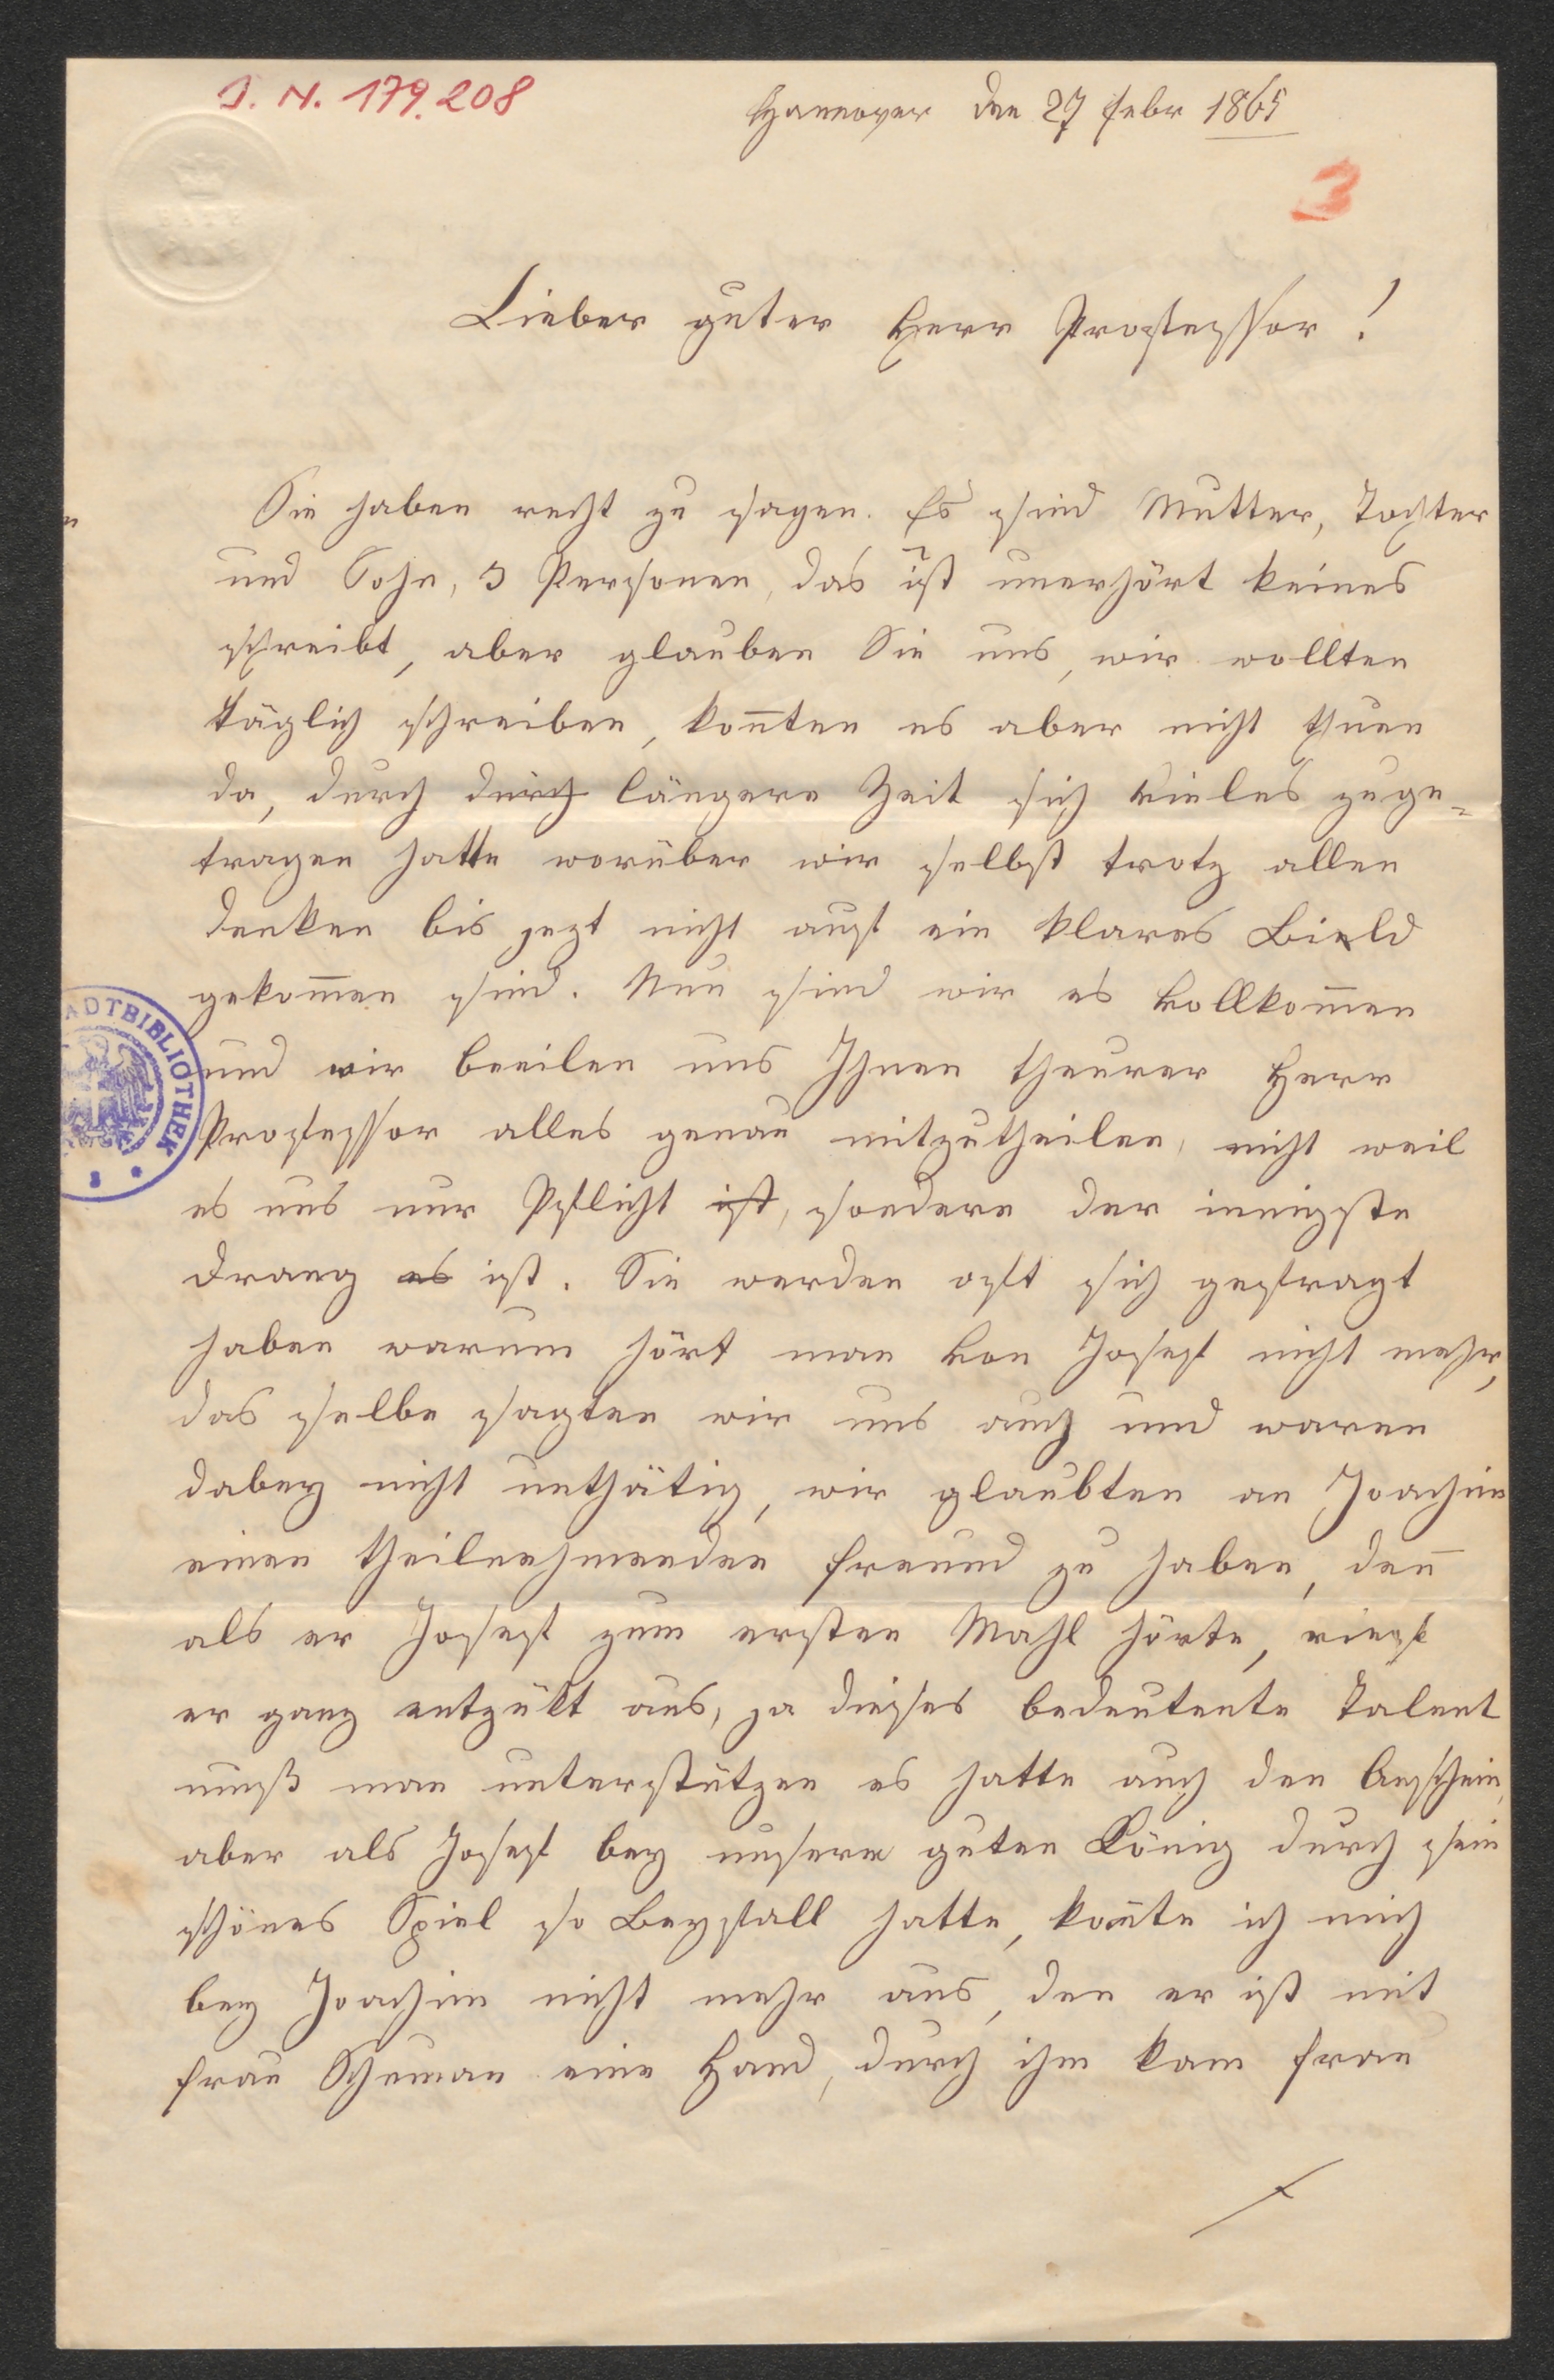 J. N. 179.208
Hannover den 27 Febr 1865
3
Lieber guter Herr Professor!
Sie haben recht zu sagen. Es sind Mutter, Tochter
und Sohn, 3 Personen, das ist unerhört keines
schreibt, aber glauben Sie uns, wir wollten
täglich schreiben, kon̄ten es aber nicht thuen
da, durch durch längere Zeit sich vieles zuge-
tragen hatte worüber wir selbst trotz allen
denken bis jezt nicht auf ein klares Bield
gekom̄en sind. Nun sind wir es vollkom̄en
und wir beeilen uns Ihnen theurer Herr
Professor alles genau mitzutheilen, nicht weil
es uns nur Pflicht ist, sondern der innigste
Drang es ist. Sie werden oft sich gefragt
haben warum hört man von Josef nicht mehr,
das selbe sagten wir uns auch und waren
dabey nicht unthätig, wir glaubten an Joachim
einen theilnehmenden Freund zu haben, den̄
als er Josef zum ersten Mahl hörte, rief
er ganz entzükt aus, ja dieses bedeutente Talent
muß man unterstützen es hatte auch den Anschein,
aber als Josef bey unsern guten König durch sein
schönes Spiel so Beyfall hatte, kon̄te ich mich
bey Joachim nicht mehr aus, den er ist mit
Frau Schuman eine Hand, durch ihm kam Frau